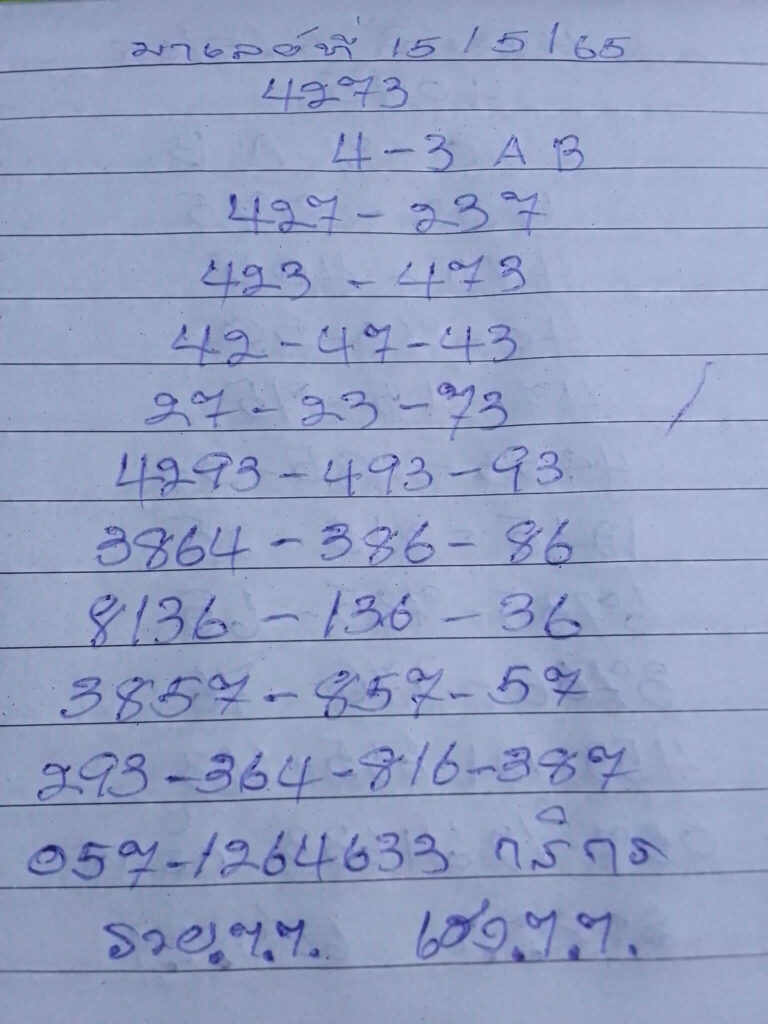 มาเลย์ที่ 15/5/65
4273
4-3 A B
427 - 237
423 - 473
42 - 47 - 43
27 - 23 - 73
4293 - 493 - 93
3864 - 386 - 86
8136 - 136 - 36
3857 - 857 - 57
293 - 364 - 816 - 387
057-1264633
รวย.ๆ.ๆ. เฮง.ๆ.ๆ.